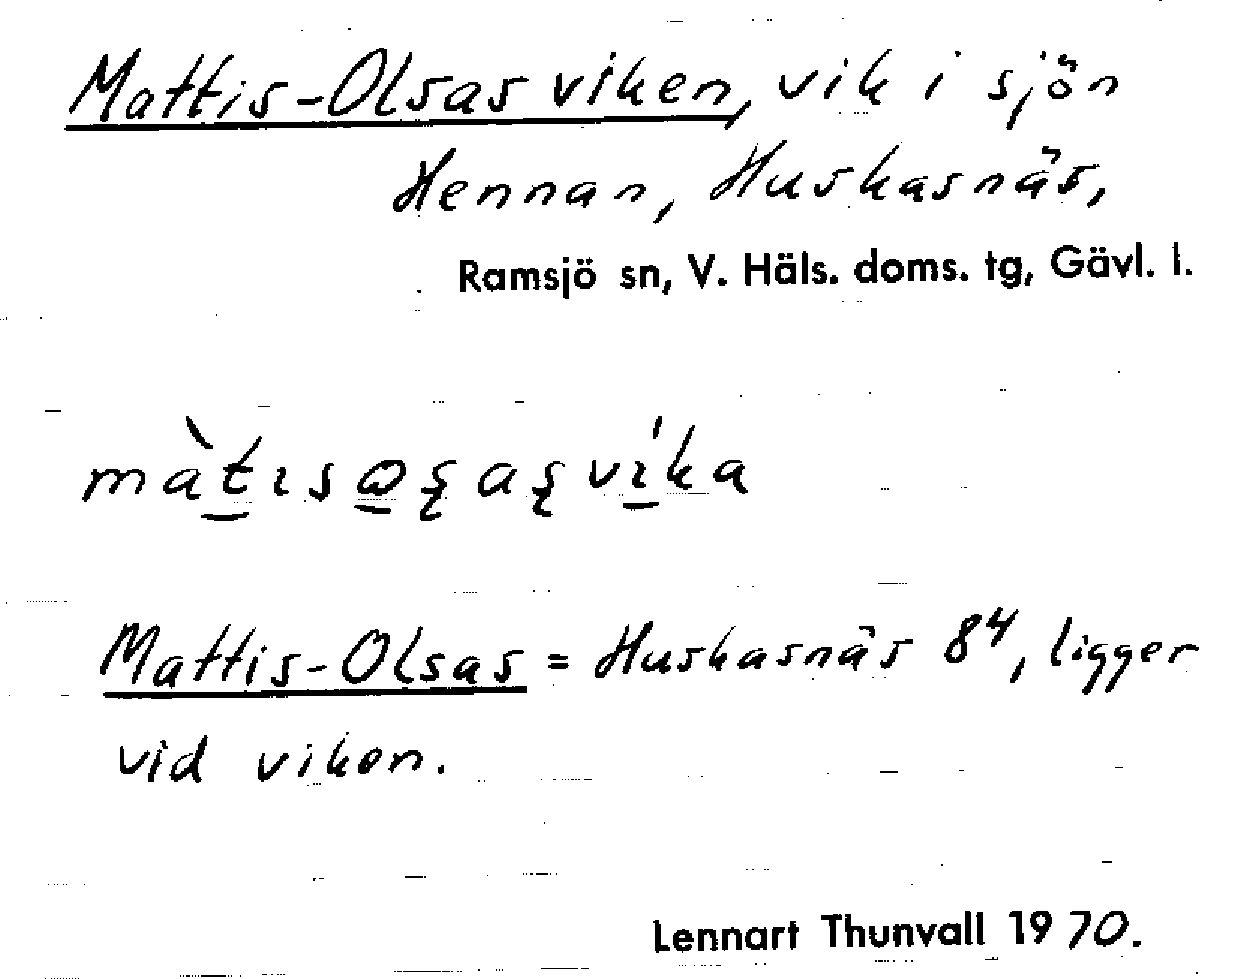 Mattis-Olsas viken, vik i sjön
Hennan, Huskasnäs,
Ramsjö sn, V. Häls. doms. tg, Gävl. l.
màt̲ɪsꞷ̲ʂaʂvı̲́ka
Mattis-Olsas = Huskasnäs 8⁴, ligger
vid viken.
Lennart Thunvall 1970.